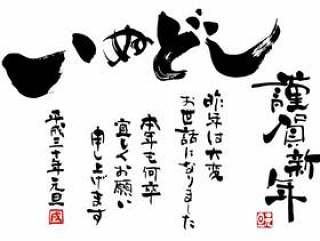 いぬどし
謹賀新年
昨年は大変
お世話になりました
本年も何卒
宜しくお願い
申し上げます
平成三十年元旦
戌